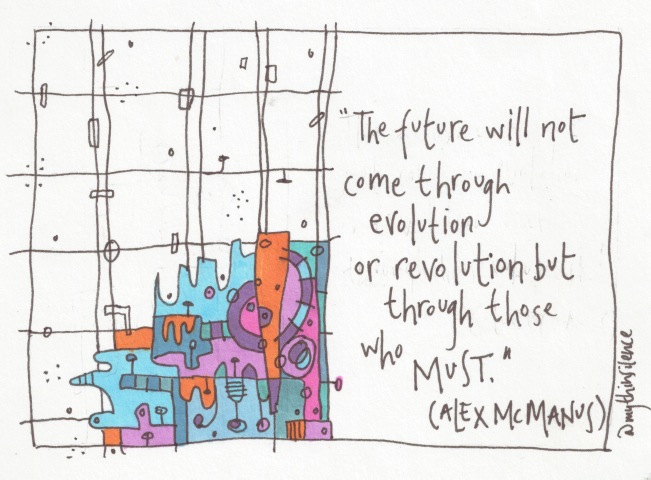 "The future will not
come through
evolution
or revolution but
through those
who MUST."
(ALEX McMANUS)
@mythinsilence